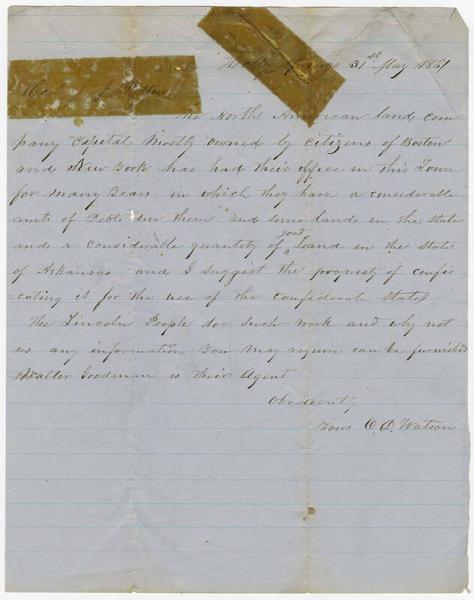 Holly Springs 31st May 1861
The North American land com
pany capital mostly owned by citizens of Boston
and New York has had their office in this Town
for many Years in which they have a considerable
amt of Debts due them and some lands in the state
and a considerable quantity of good Land in the State
of Arkansas and I suggest the propriety of confis
=cating it for the use of the Confederate States
The Lincoln People doe such work and why not
us any information You may require can be furnished
Walter Goodman is their Agent
Obediently
Yours O. O. Watson